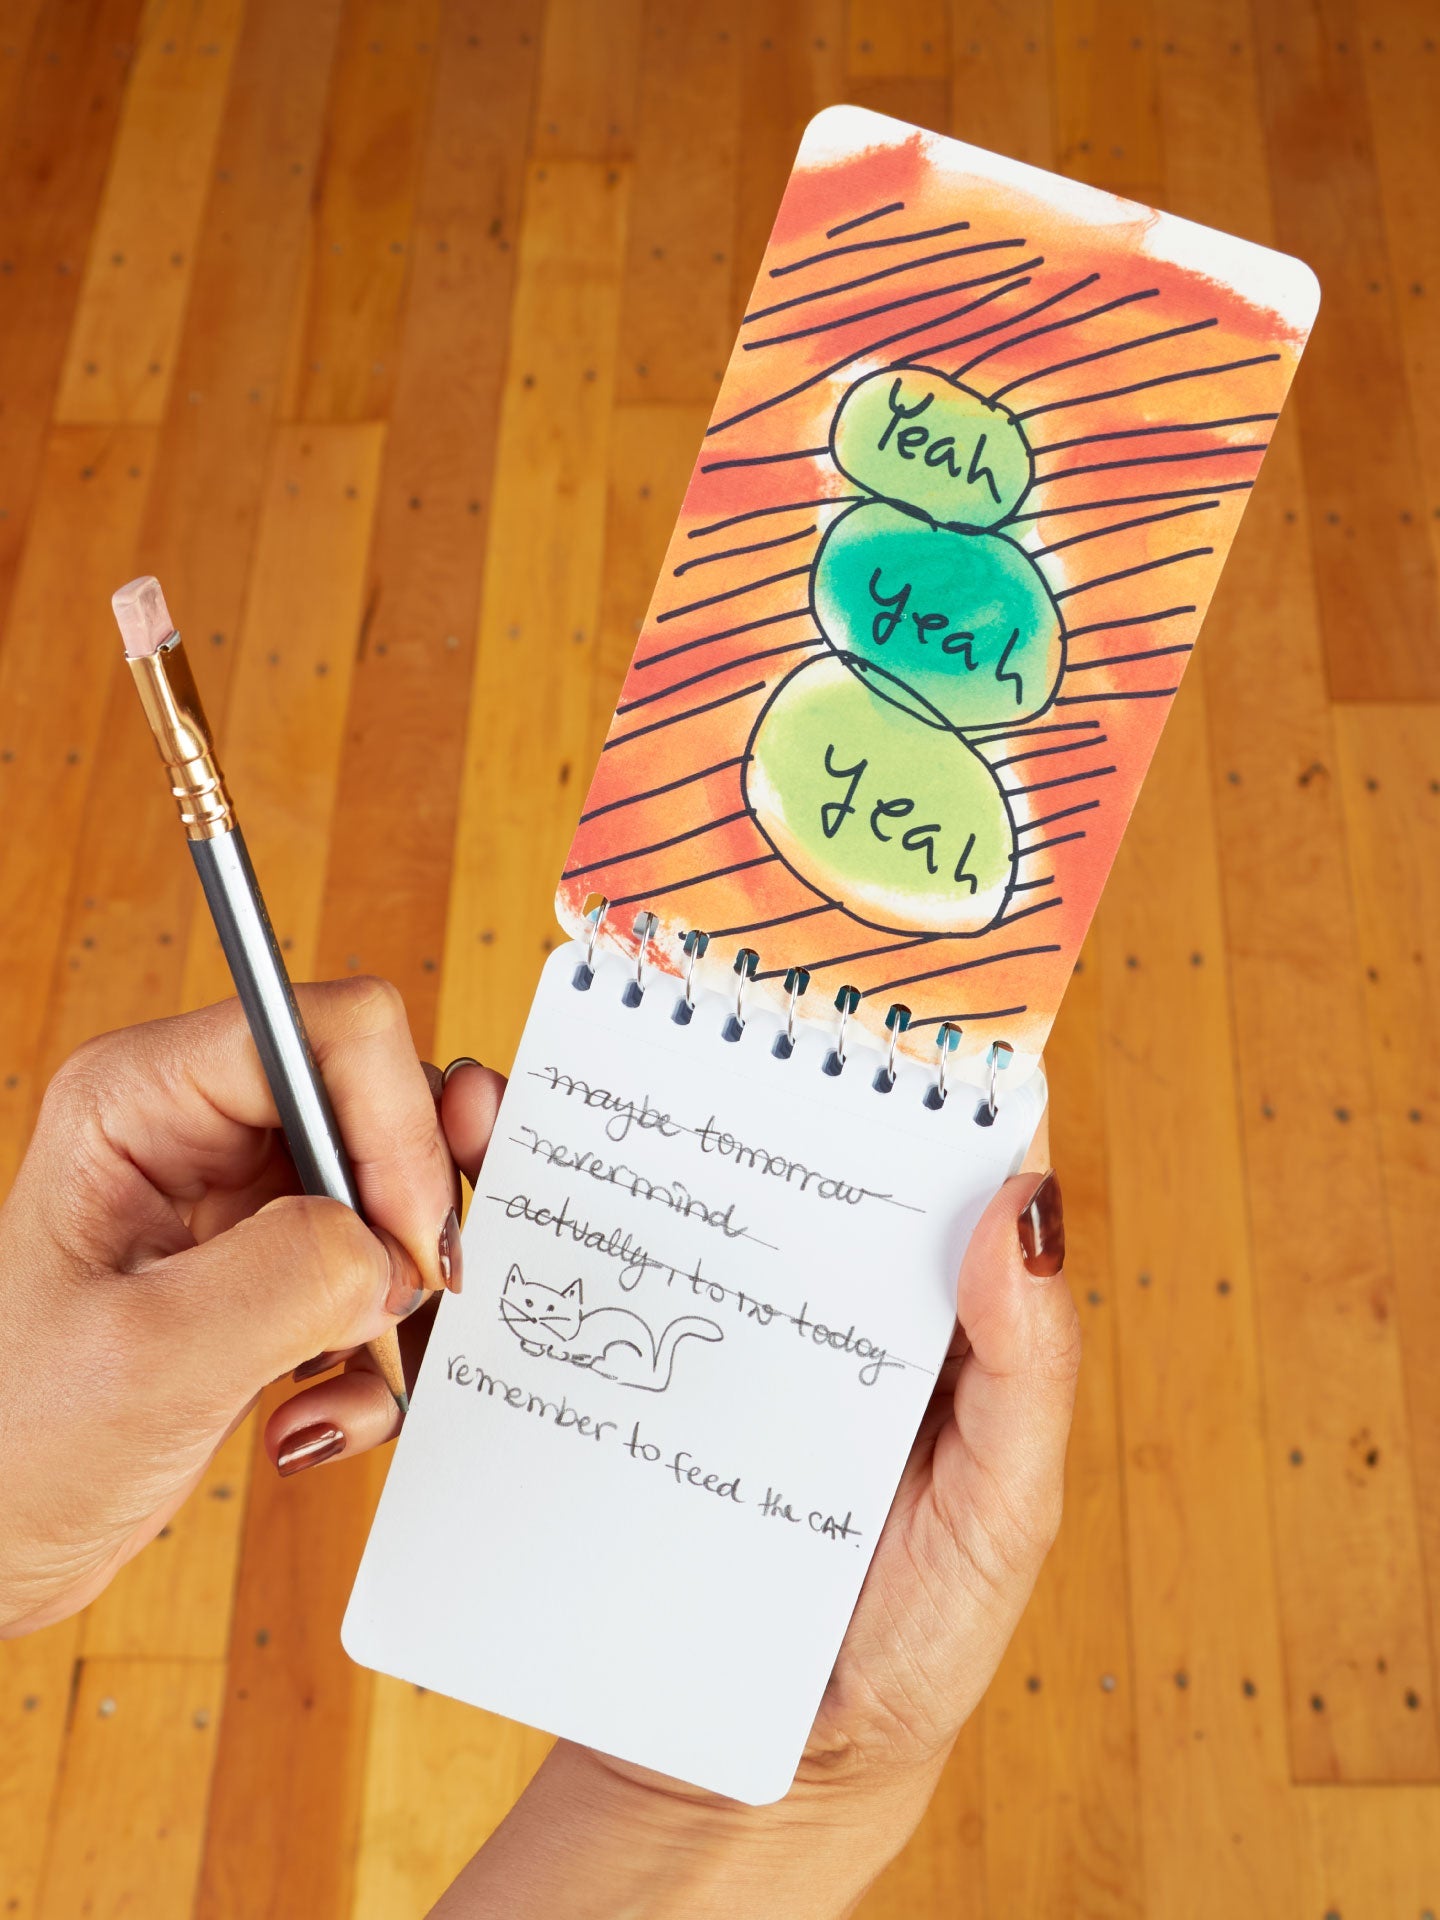 Yeah
yeah
yeah
maybe tomorrow
nevermind
actually, today
remember to feed the cAt.